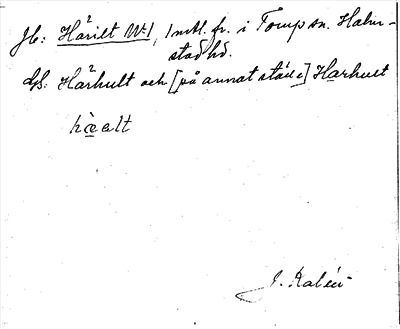 Jb: Hårilt N:1, 1 mtl. fr. i Torup sn. Halm-
stad hd.
ds: Hårhult och [på annat ställe] Harhult
hæ̀alt
J. Kalén